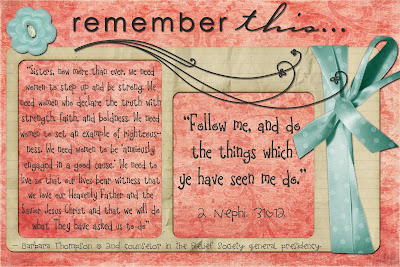 remember this...
"Sisters, now more than ever, we need
women to step up and be strong. We
need women who declare the truth with
strength, faith, and boldness. We need
women to set an example of righteous-
ness. We need women to be 'anxiously
engaged in a good cause.' We need to
live so that our lives bear witness that
we love our Heavenly Father and the
Savior Jesus Christ and that we will do
what They have asked us to do."
- Barbara Thompson 2nd counselor in the Relief Society general presidency
"Follow me, and do
the things which
ye have seen me do."
2 Nephi 31:12